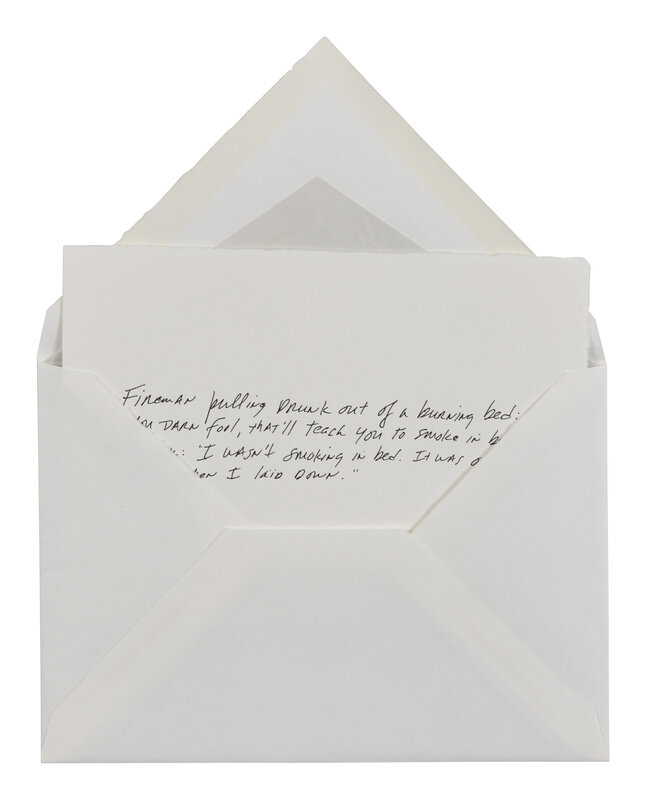 Fireman pulling Drunk out of a burning bed:
Darn fool, that'll teach you to smoke in
"I wasn't smoking in bed. It was
I laid down."